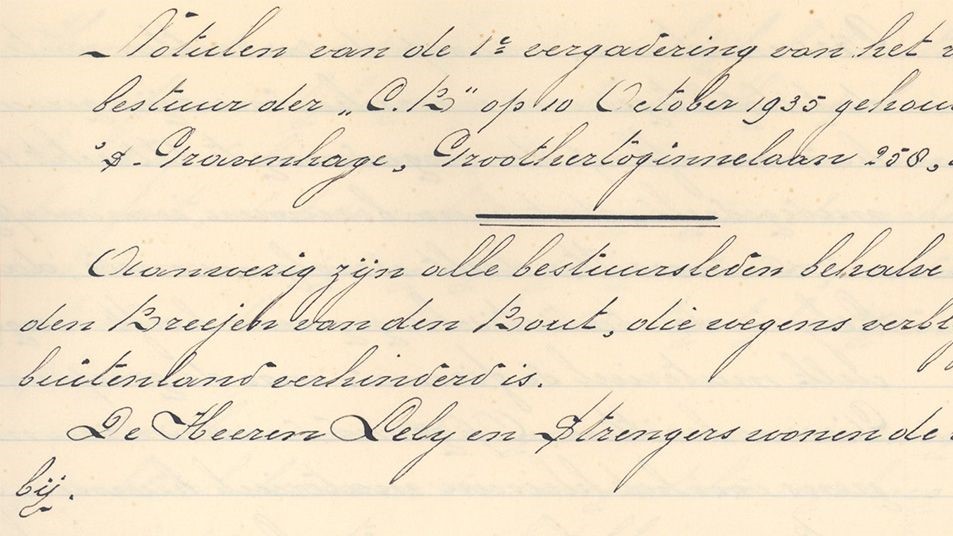 Notulen van de 1e vergadering van het
bestuur der „C.B" op 10 October 1935 gehou
's-Gravenhage, Groothertoginnelaan 258,
Aanwezig zijn alle bestuursleden behalve
den Breejen van den Bout, die wegens verbl
buitenland verhinderd is.
De Heeren Lely en Strengers wonen de
bij.